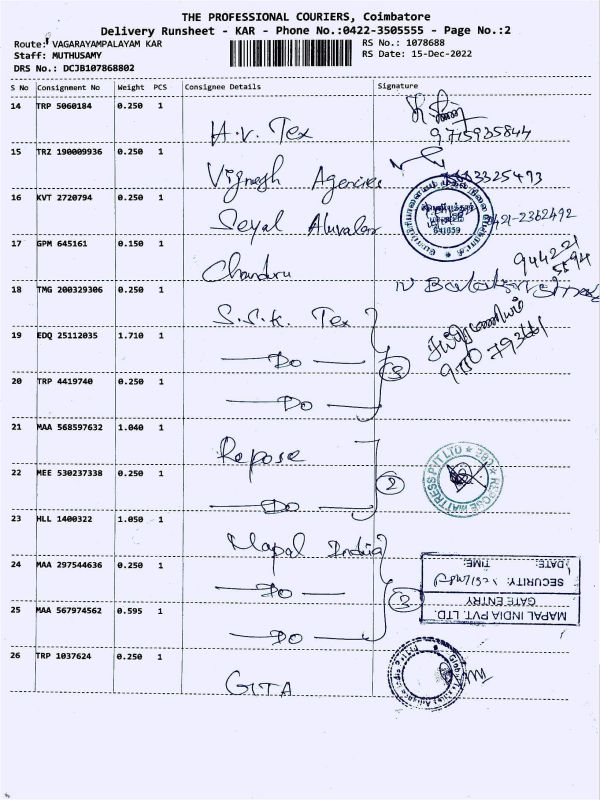 THE PROFESSIONAL COURIERS, Coimbatore
Delivery Runsheet - KAR - Phone No.:0422-3505555 - Page No.:2
Route: VAGARAYAMPALAYAM KAR RS No.: 1078688
Staff: MUTHUSAMY RS Date: 15-Dec-2022
DRS No.: DCJB107868802
S No Consignment No Weight PCS Consignee Details Signature
14 TRP 5060184 0.250 1 H.V. Tex
9715935844
15 TRZ 190009936 0.250 1 Vignesh Agencies
16 KVT 2720794 0.250 1 Seyal Aluvalar
641659
17 GPM 645161 0.150 1 Chanduru
944221
5594
18 TMG 200329306 0.250 1 S.S.K. Tex
19 EDQ 25112035 1.710 1 Do 3
20 TRP 4419740 0.250 1 Do
21 MAA 568597632 1.040 1 Repose
22 MEE 530237338 0.250 1 Do 2
MATTRESS PVT LTD
23 HLL 1400322 1.050 1 Mapal India
24 MAA 297544636 0.250 1 Do 3
MAPAL INDIA PVT. LTD.
GATE ENTRY
SECURITY:
DATE: TIME:
25 MAA 567974562 0.595 1 Do
26 TRP 1037624 0.250 1 GITA